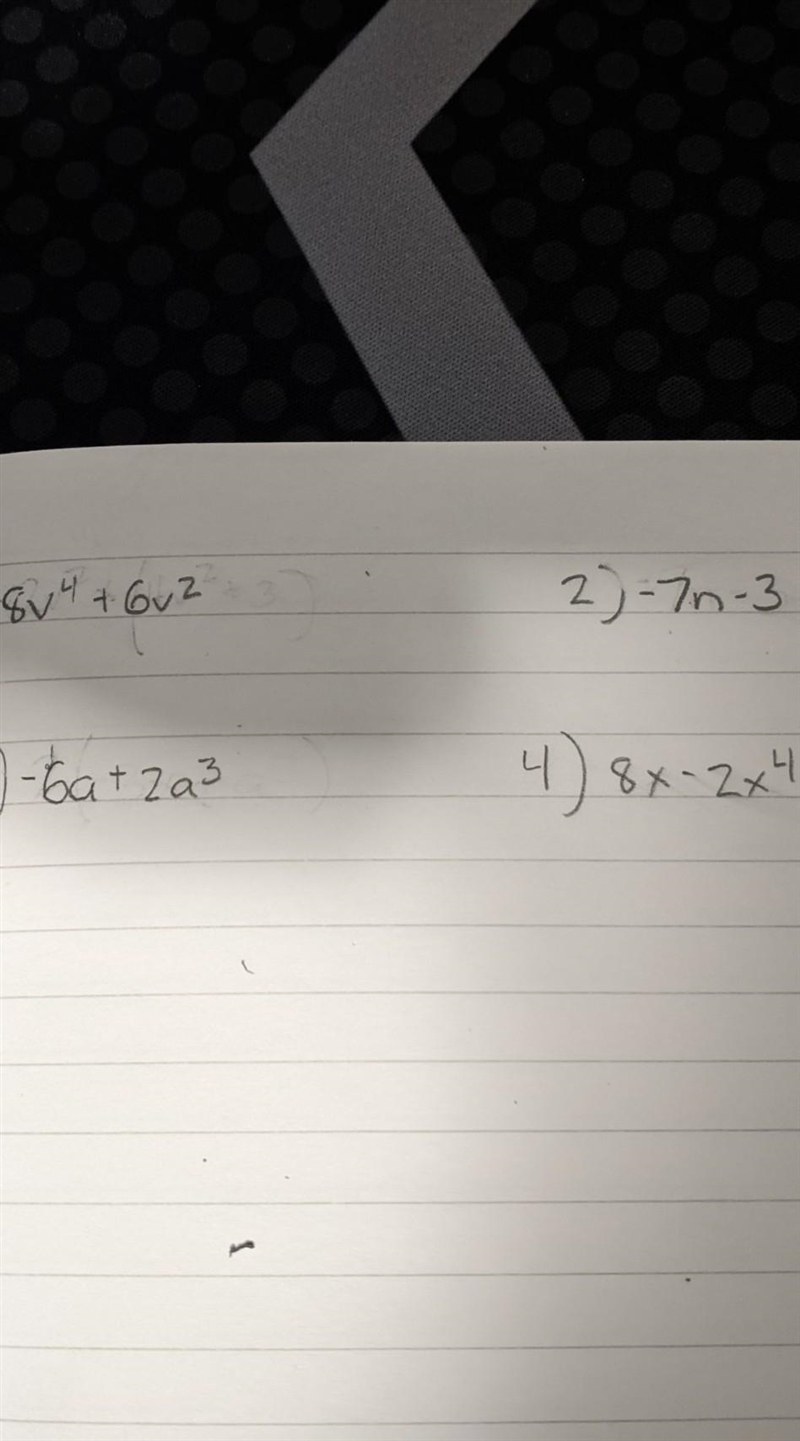 8v⁴ + 6v² 2) -7n - 3
) -6a + 2a³ 4) 8x - 2x⁴